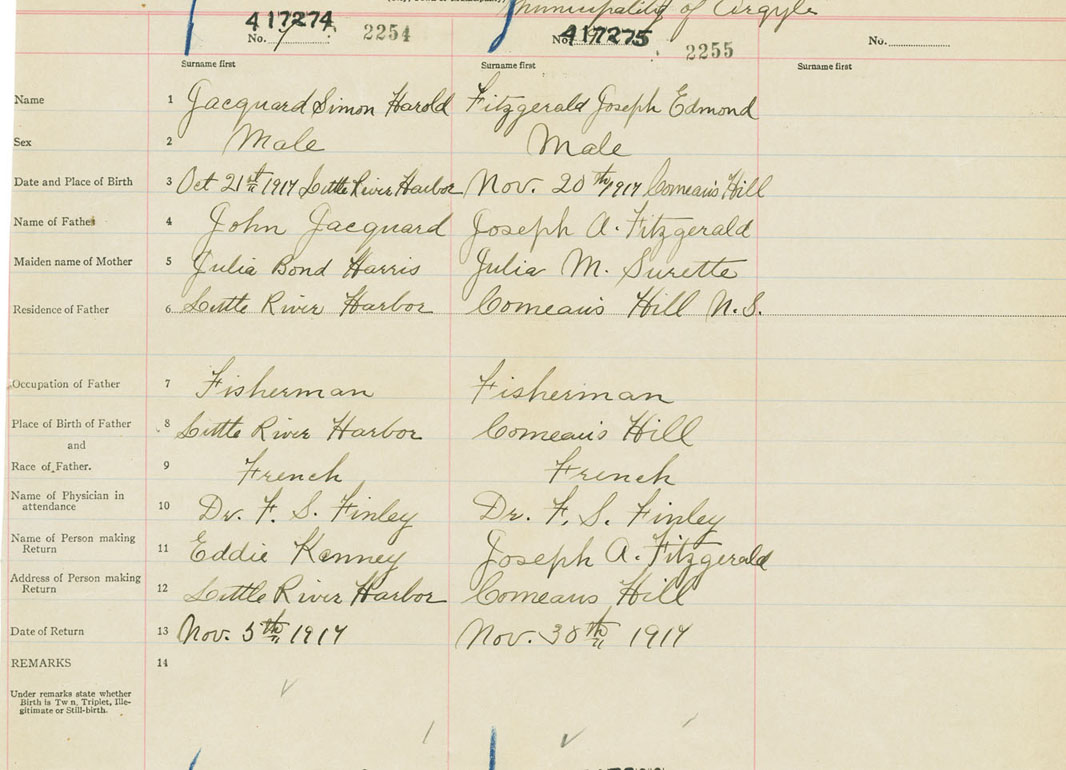 Municipality of Argyle
417274 417275
No. 2254 No. 2255 No.
Surname first Surname first Surname first
Name 1 Jacquard Simon Harold Fitzgerald Joseph Edmond
Sex 2 Male Male
Date and Place of Birth 3 Oct 21st 1917 Little River Harbor Nov. 20th 1917 Comeau's Hill
Name of Father 4 John Jacquard Joseph A. Fitzgerald
Maiden name of Mother 5 Julia Bond Harris Julia M. Surette
Residence of Father 6 Little River Harbor Comeau's Hill N.S.
Occupation of Father 7 Fisherman Fisherman
Place of Birth of Father 8 Little River Harbor Comeau's Hill
and
Race of Father. 9 French French
Name of Physician in
attendance 10 Dr. F. S. Finley Dr. F. S. Finley
Name of Person making
Return 11 Eddie Kenney Joseph A. Fitzgerald
Address of Person making
Return 12 Little River Harbor Comeaus Hill
Date of Return 13 Nov. 5th 1917 Nov. 30th 1917
REMARKS 14
Under remarks state whether
Birth is Twin, Triplet, Ille-
gitimate or Still-birth.